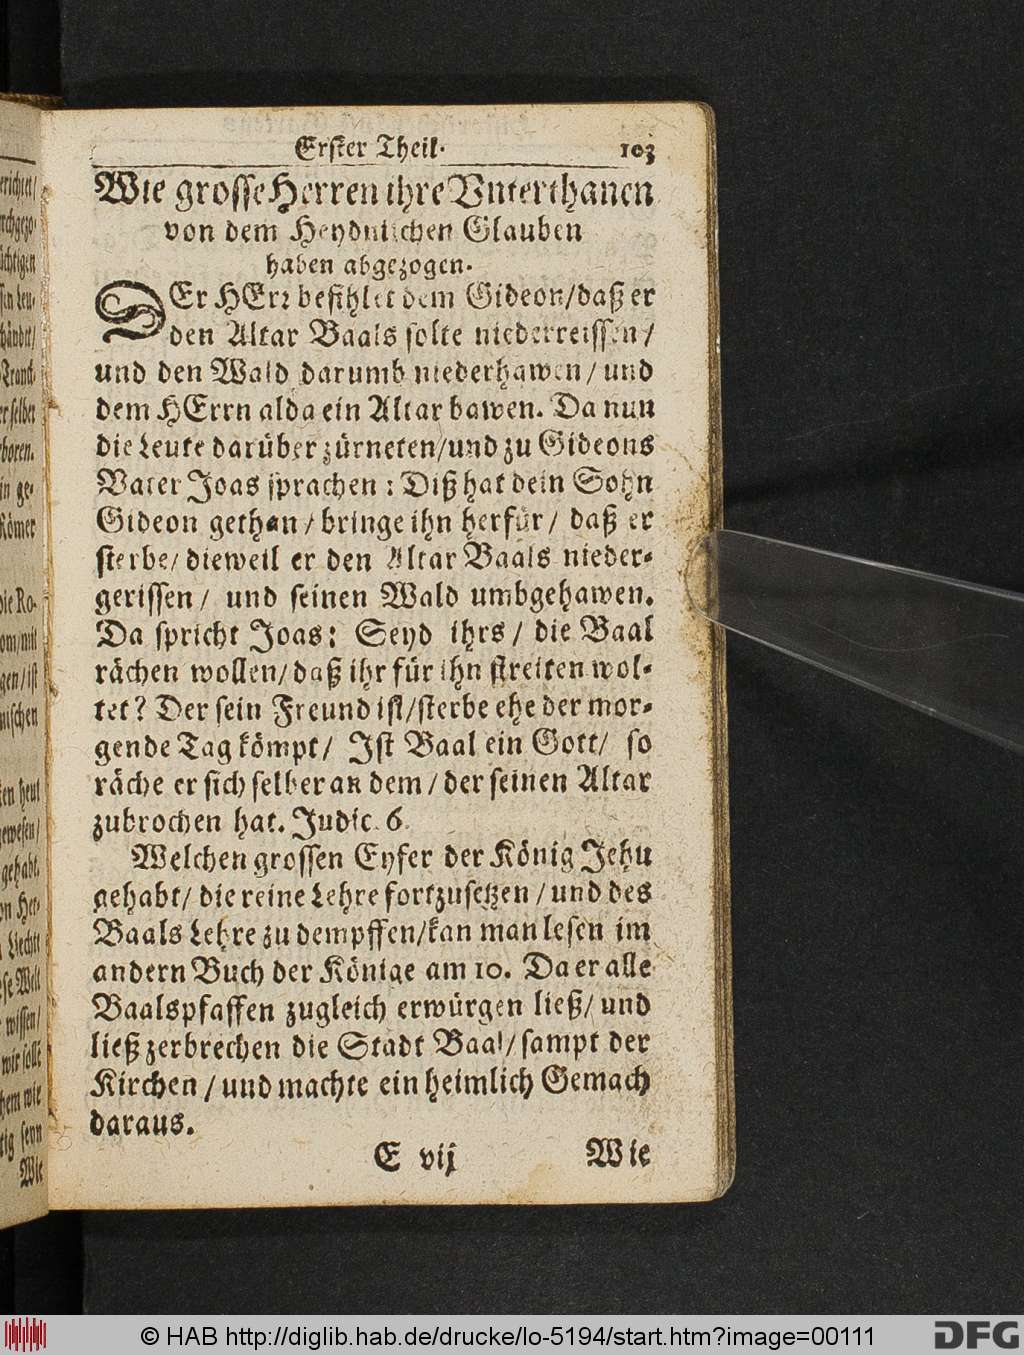 Erster Theil. 103
Wie grosse Herren ihre Vnterthanen
von dem Heydnischen Glauben
haben abgezogen.
DEr HErr befihlet dem Gideon/daß er
den Altar Baals solte niederreissen/
und den Wald darumb niederhawen/und
dem HErrn alda ein Altar bawen. Da nun
die Leute darüber zürneten/und zu Gideons
Vater Joas sprachen: Diß hat dein Sohn
Gideon gethan/bringe ihn herfür/ daß er
sterbe/dieweil er den Altar Baals nieder-
gerissen/ und seinen Wald umbgehawen.
Da spricht Joas: Seyd ihrs/ die Baal
rächen wollen/daß ihr für ihn streiten wol-
tet? Der sein Freund ist/sterbe ehe der mor-
gende Tag kömpt/ Ist Baal ein Gott/ so
räche er sich selber an dem/der seinen Altar
zubrochen hat. Judic. 6.
Welchen grossen Eyfer der König Jehu
gehabt/die reine Lehre fortzusetzen/und des
Baals Lehre zu dempffen/kan man lesen im
andern Buch der Könige am 10. Da er alle
Baalspfaffen zugleich erwürgen ließ/und
ließ zerbrechen die Stadt Baal/sampt der
Kirchen/und machte ein heimlich Gemach
daraus.
E vij Wie
© HAB http://diglib.hab.de/drucke/lo-5194/start.htm?image=00111
DFG